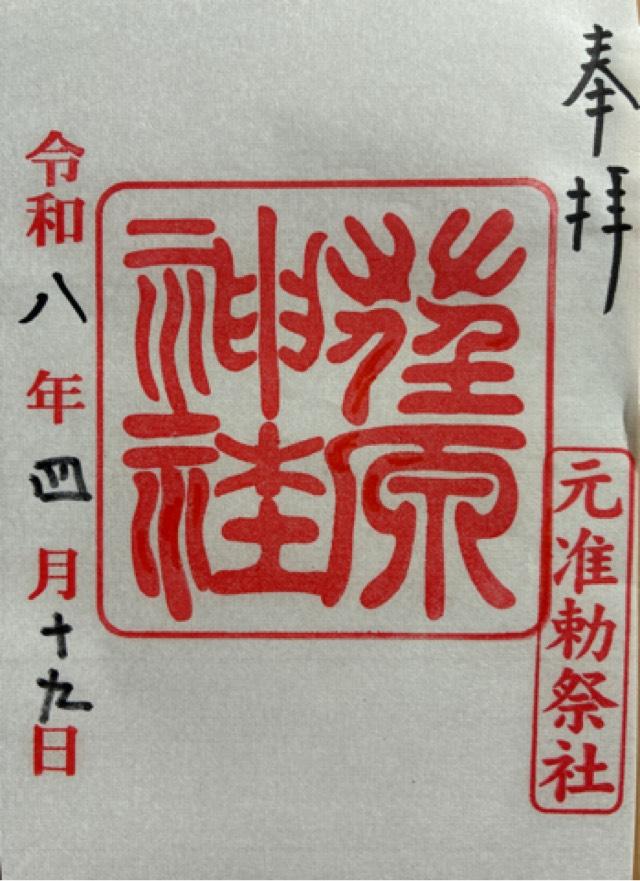 奉拝
元准勅祭社
荏原
神社
令和八年四月十九日